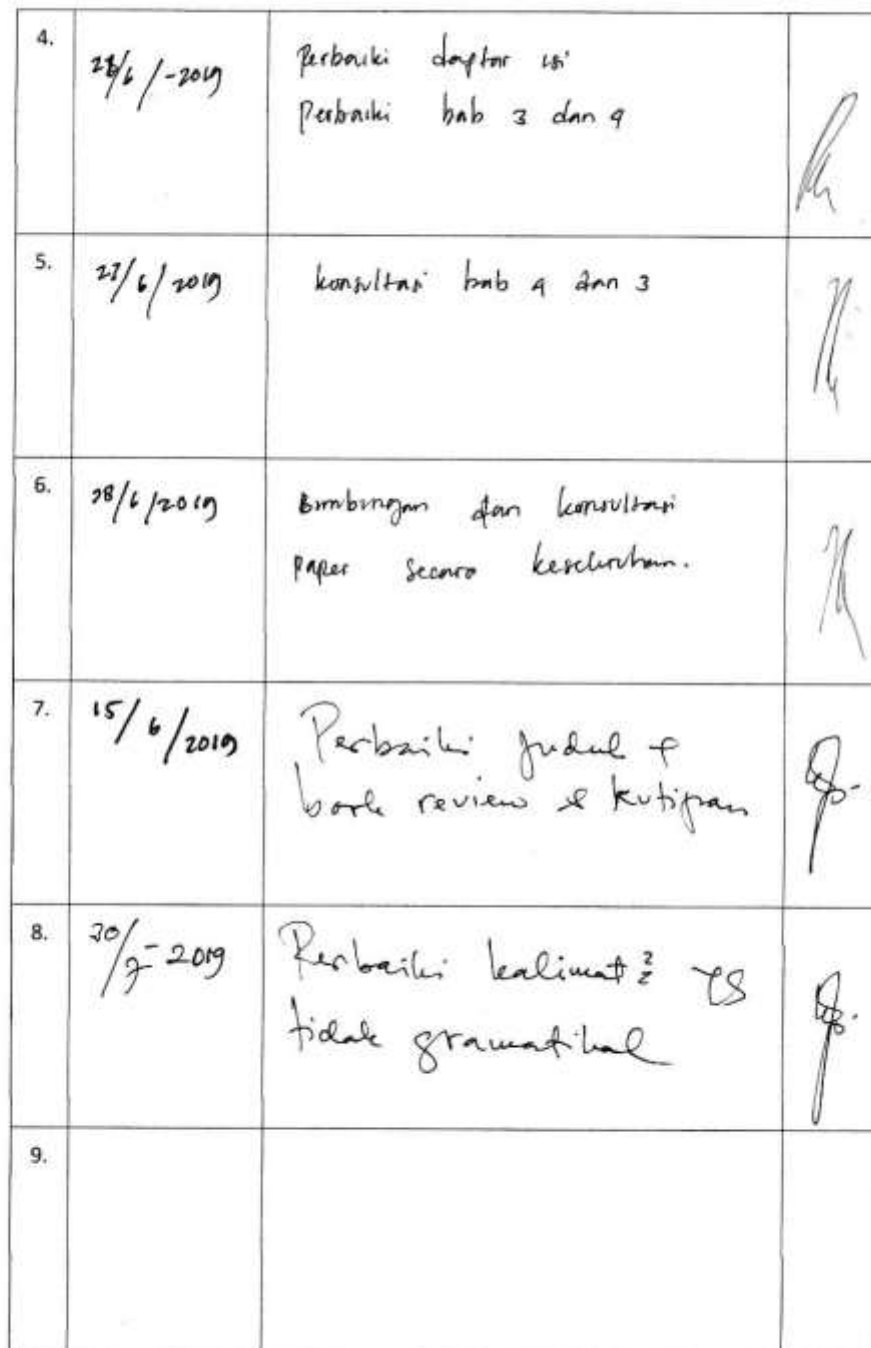 4.
/6/-2019
Perbaiki daptar isi
Perbaiki bab 3 dan 4
5.
27/6/2019
konsultasi bab 4 dan 3
6.
28/6/2019
Bimbingan dan konsultasi
paper secara keseluruhan.
7.
15/6/2019
Perbaiki judul &
book review & kutipan
8.
30/7-2019
Perbaiki kalimat2 yg
tidak gramatikal
9.